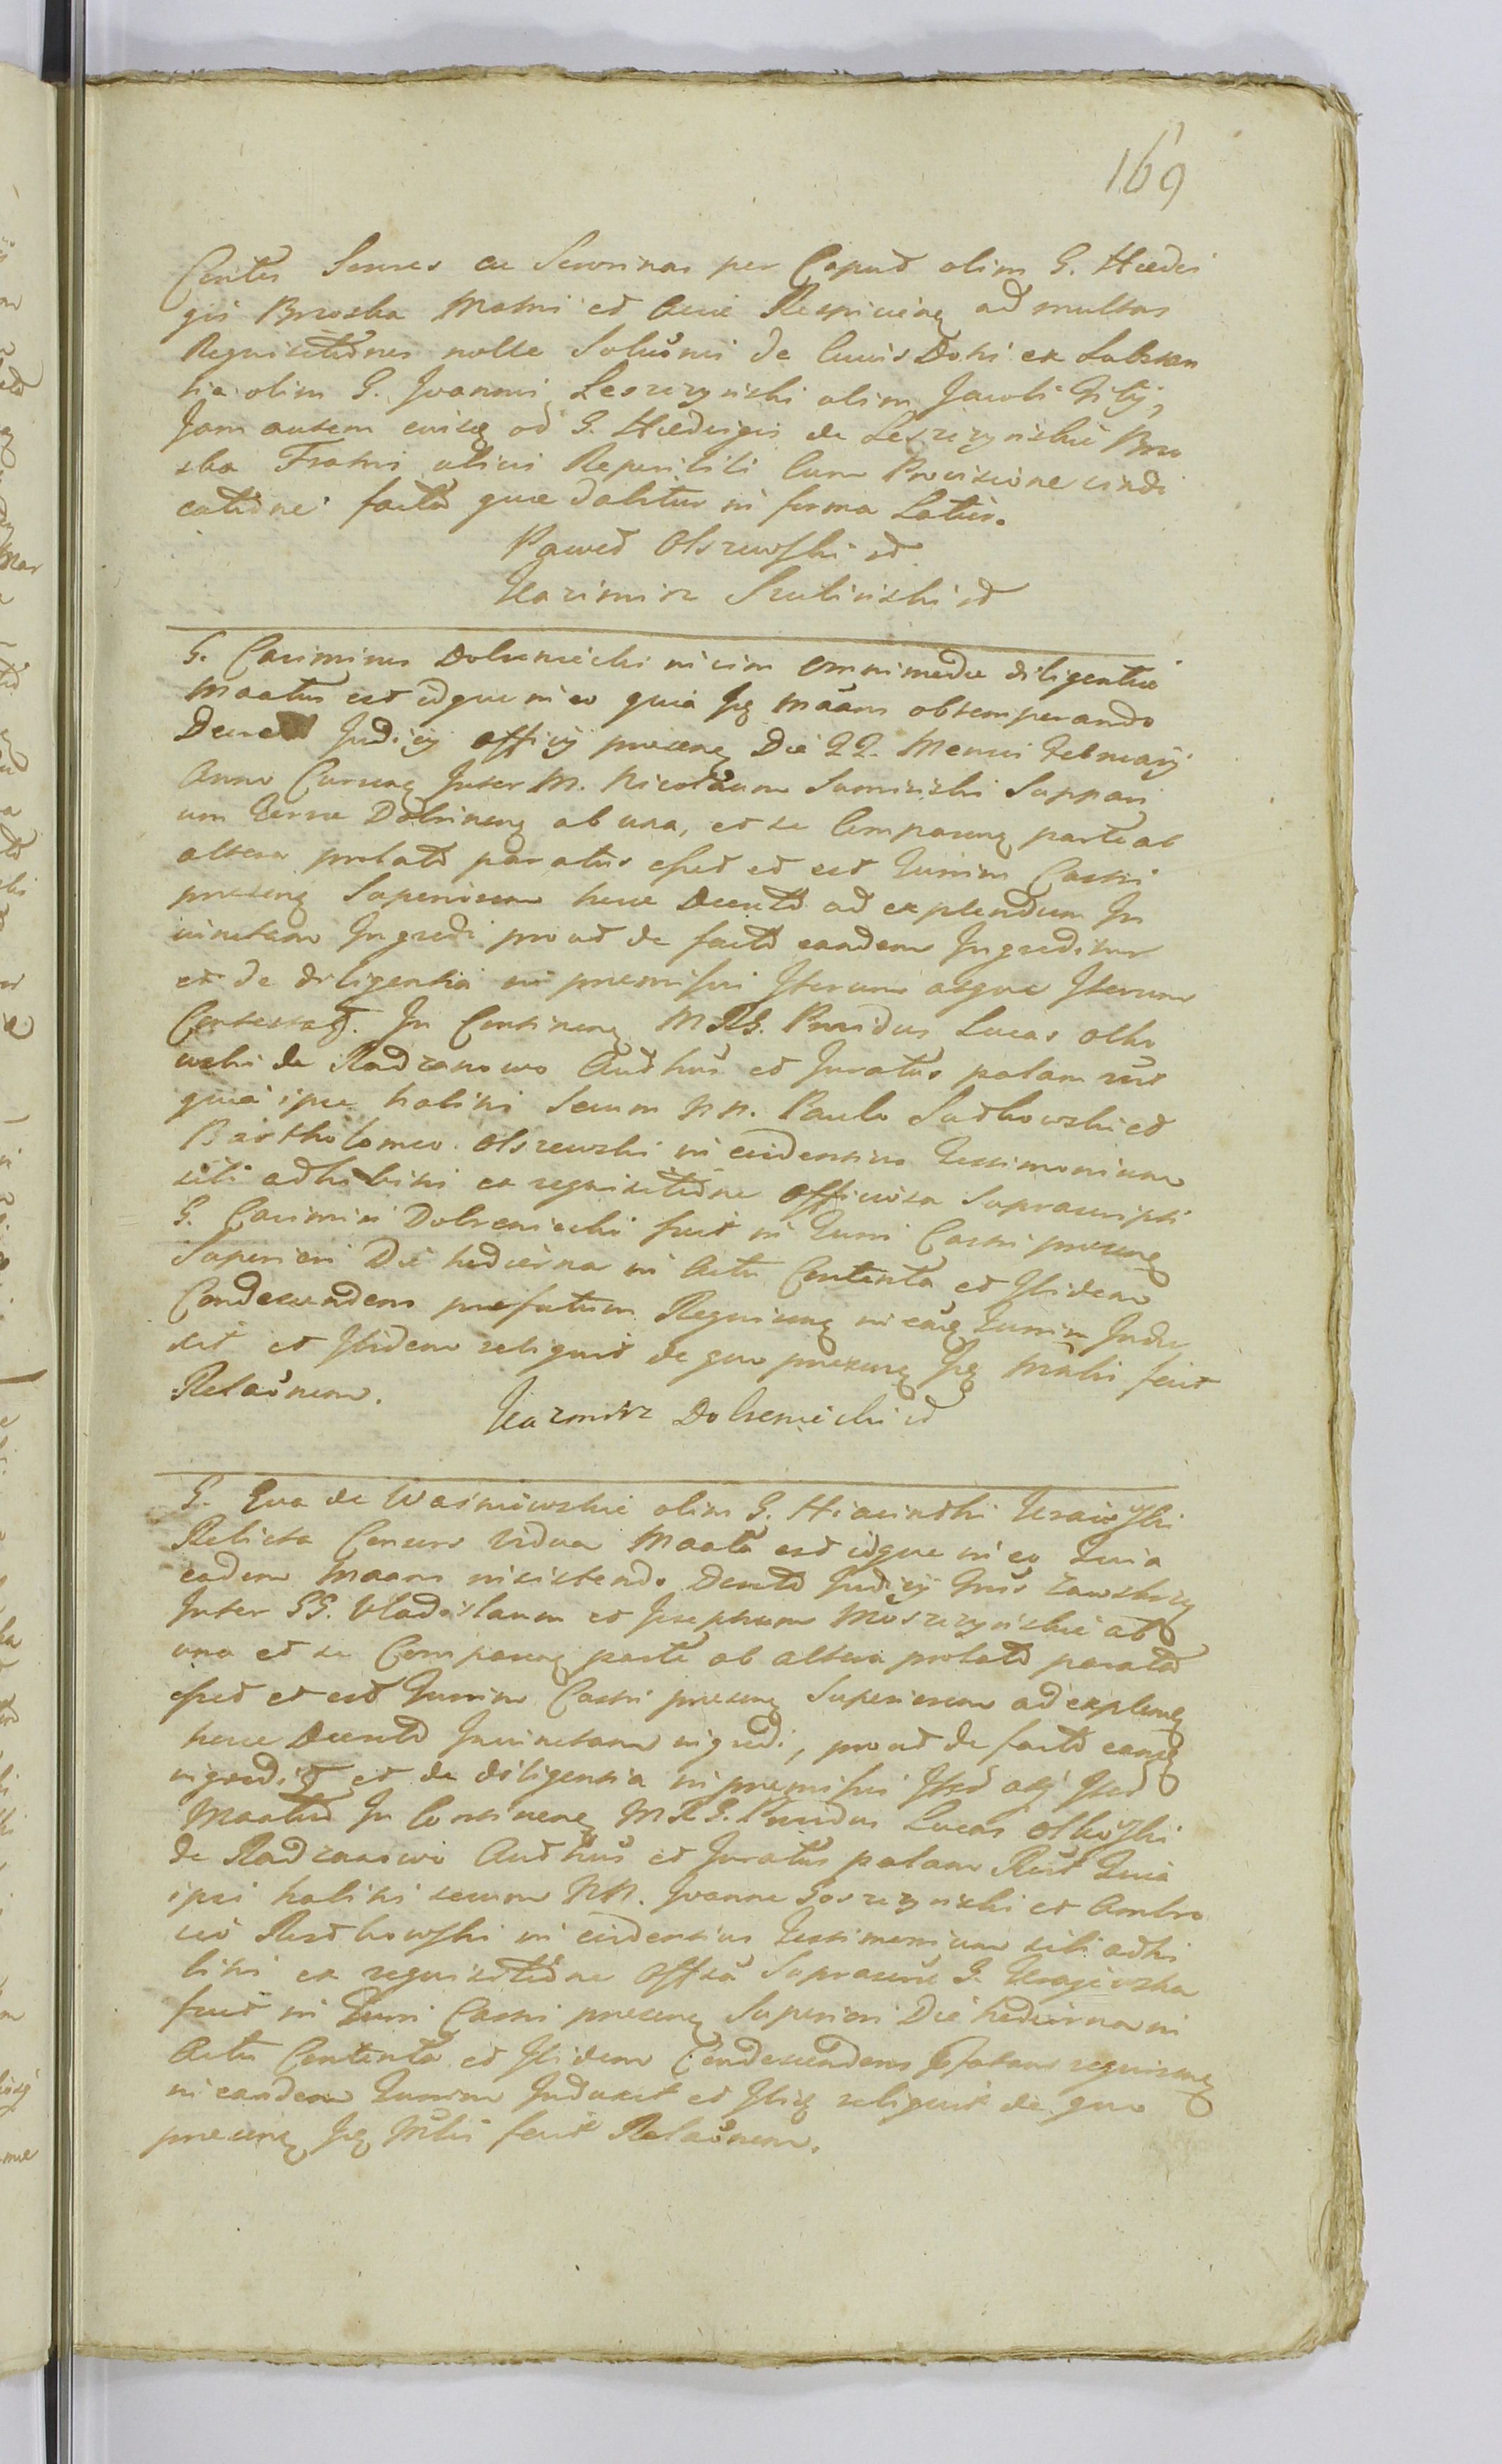 169
Contra Sorores ac Sororinas per Caput olim G. Hedvi
gis Brzoska Matri et Aviæ Respicienᵹ ad multas
Requisitiones nolle Soluõni de lucris Doti ex Substan
tia olim G. Joannis Leszczynski olim Jacobi Filij,
Jam autem eivsᵹ ad G. Hedvigis de Leszczynskie Brzo
ska Fratris ulivi Reperibili Cum Provisione vindi
catione facta quæ dabitur in forma Latius.
Paweł Olszewski ꝛ
Kazimirz Szulinski ꝛ
G. Casimirus Dobrzeniecki in vim omnimodæ diligentiæ
Maatus est idque in eo quia Iᵹ mããns obtemperando
Decreto Judicij Officij præsenᵹ Die 22. Mensis Februarij
Anno Cursenᵹ Inter M. Nicolaum Suminski Suppari
um Terræ Dobrinenᵹ ab una, et se Comparenᵹ parte ab
altera prolato paratus esset et est Turrim Castri
præsenᵹ Superiorem hocce Decreto ad explendum In
vinctam Ingredi prout de facto eandem Ingreditur
et de diligentia in præmissis Iterum atque Iterum
Contestatᵹ. In Continenᵹ MRS. Providus Lucas Olko
wski de Radzanowo Authus et Juratus palam rec̃t
quia ipse habitis secum NN. Paulo Sudkowski et
Bartholomeo Olszewski in evidentius Testimonium
sibi adhibitis ex requisitione Officiosa Suprascripti
G. Casimiri Dobrzeniecki fuit in Turri Castri præsenᵹ
Superiori Die hodierna in Actu Contenta et Ibidem
Condescendens præfatum Requirenᵹ in eãᵹ Turrim Indu
xit et Ibidem reliquit de quo præsenᵹ Iᵹ Ministri fecit
Relaõnem.
Kazimirz Dobrzeniecki ꝛ
G. Eva de Waśniewskie olim G. Hiacinthi Kraiewski
Relicta Consors Vidua Maata est idque in eo Quia
eadem Maans insistendo Decreto Judicij Tris Zawskrᵹ
Inter GG. Vladislaum et Josephum Moszczynskie ab
una et se Comparenᵹ parte ab altera prolato parata
esset et est Turrim Castri præsenᵹ Superiorem ad explenᵹ
hocce Decreto Invinctam ingredi, prout de facto eanᵹ
ingreditᵹ et de diligentia in præmissis Itẽr atᵹ Itẽr
Maatur In Continenᵹ MRS. Providus Lucas Olkowski
de Radzanowo Authus et Juratus palam Rec̃t Quia
ipse habitis secum NN. Joanne Goszczynski et Ambro
sio Rudkowski in evidentius Testimonium sibi adhi
bitis ex requisitione Offsa Suprascriptæ G. Kraiewska
fuit in Turri Castri præsenᵹ Superiori Die hodierna in
Actu Contenta et Ibidem Condescendens Præfatam requirenᵹ
in eandem Turrim Induxit et Ibiᵹ reliquit de quo
præsenᵹ Iᵹ Mltri fecit Relaõnem.